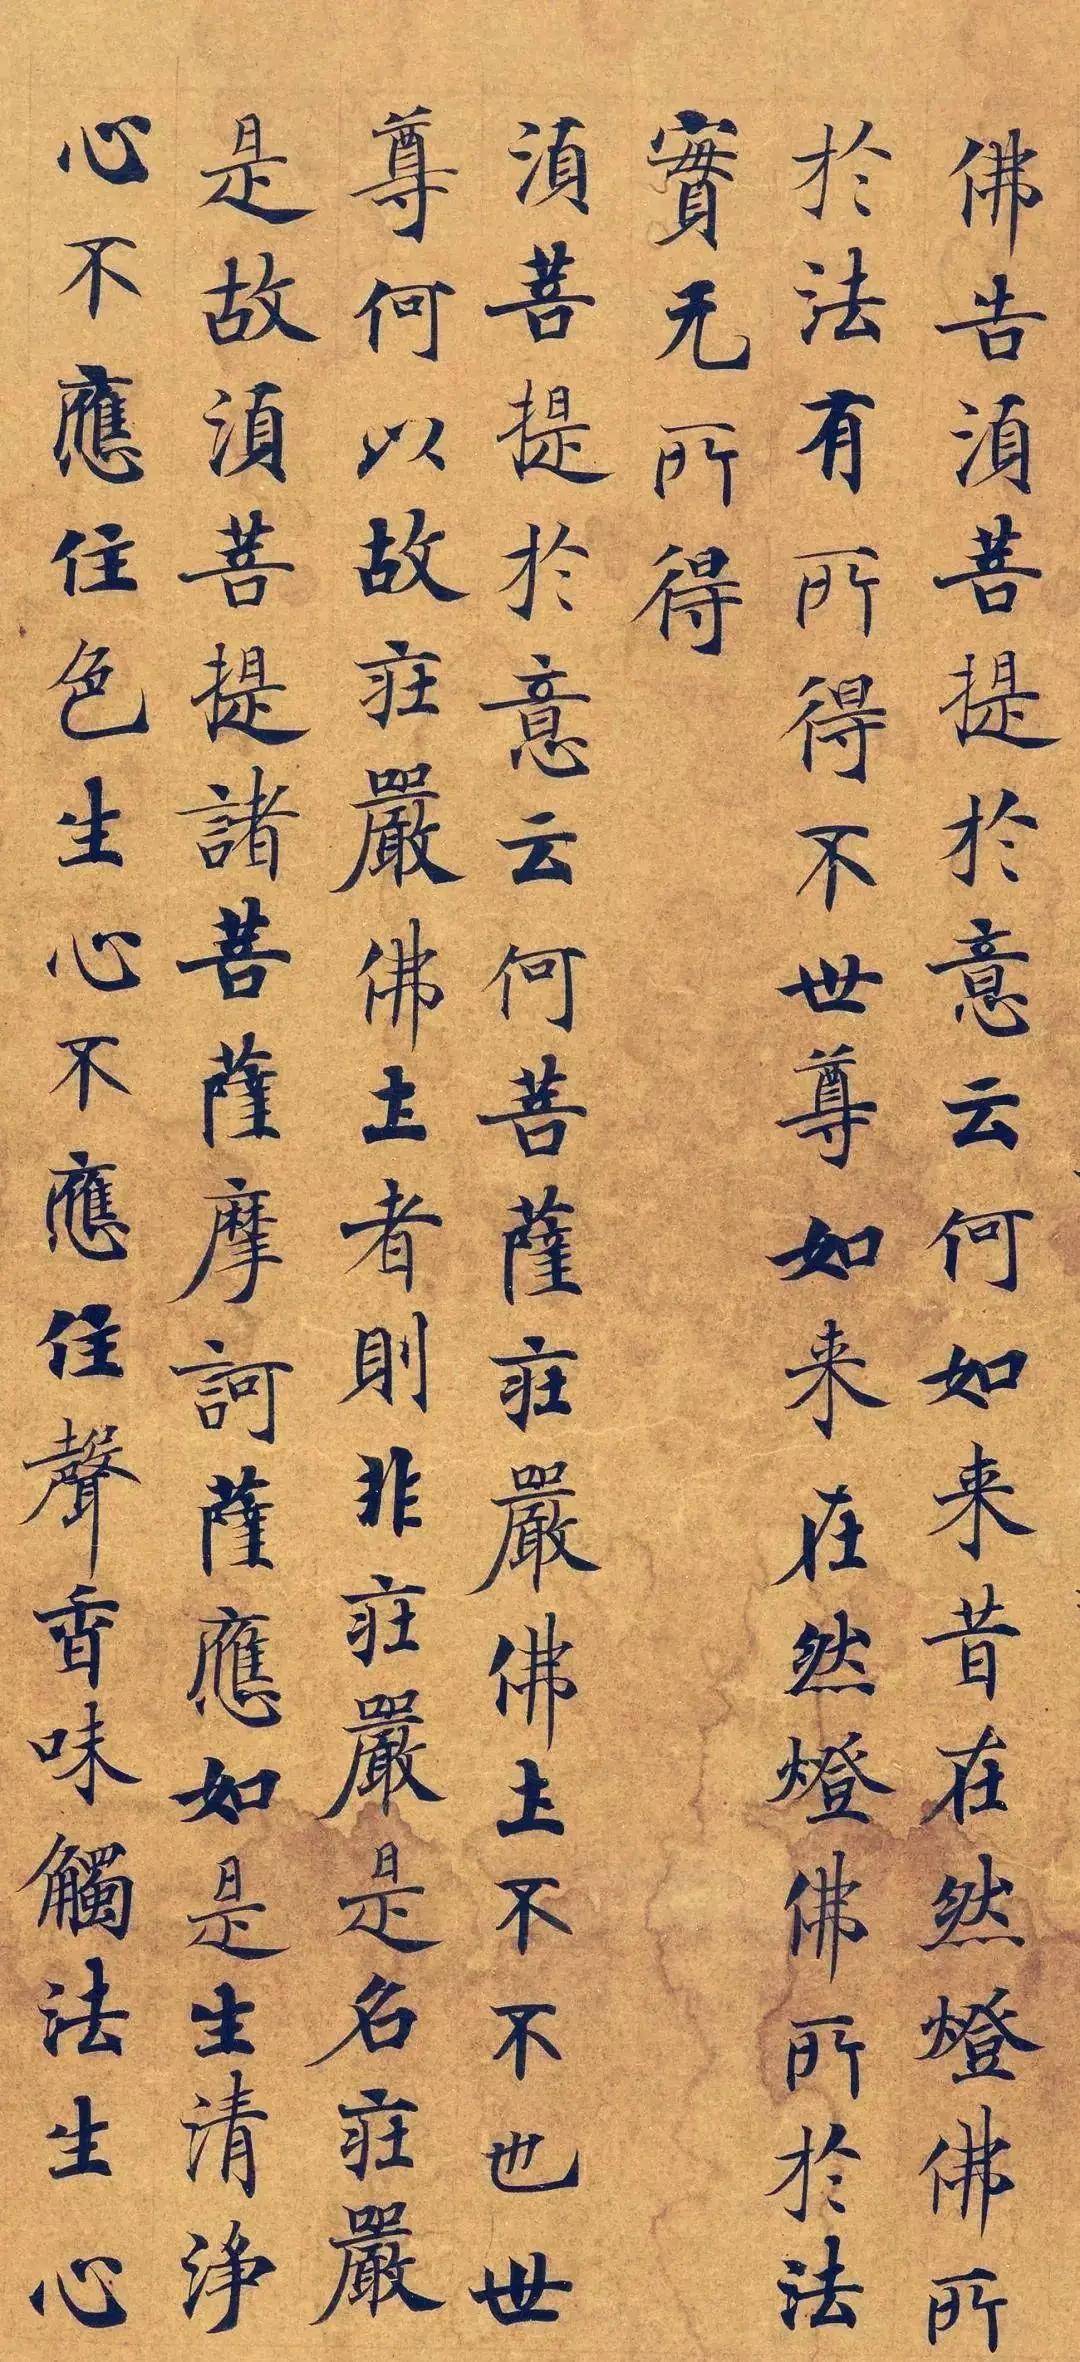 佛告湏菩提於意云何如来昔在然燈佛所
於法有所得不世尊如来在然燈佛所於法
實无所得
湏菩提於意云何菩薩莊嚴佛土不不也世
尊何以故莊嚴佛土者則非莊嚴是名莊嚴
是故湏菩提諸菩薩摩訶薩應如是生清淨
心不應住色生心不應住聲香味觸法生心